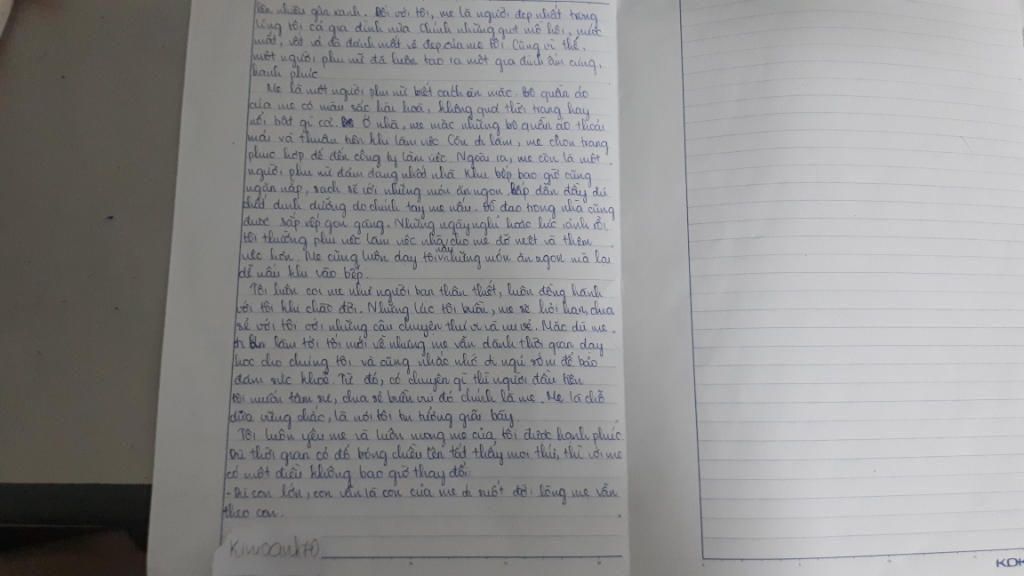 lên nhiều gân xanh. Đối với tôi, mẹ là người đẹp nhất trong
lòng tôi cả gia đình nữa. Chính những giọt mồ hôi, nước
mắt, vất vả đã đánh mất vẻ đẹp của mẹ tôi. Cũng vì thế,
một người phụ nữ đã luôn tạo ra một gia đình ấm cúng,
hạnh phúc.
Mẹ là một người phụ nữ biết cách ăn mặc. Bộ quần áo
của mẹ có màu sắc hài hoà, không quá thời trang hay
nổi bật gì cả. Ở nhà, mẹ mặc những bộ quần áo thoải
mái và thuận tiện khi làm việc. Còn đi làm, mẹ chọn trang
phục hợp để đến công ty làm việc. Ngoài ra, mẹ còn là một
người phụ nữ đảm đang nhất nhà. Khu bếp bao giờ cũng
ngăn nắp, sạch sẽ với những món ăn ngon, hấp dẫn đầy đủ
chất dinh dưỡng do chính tay mẹ nấu. Đồ đạc trong nhà cũng
được sắp xếp gọn gàng. Những ngày nghỉ hoặc lúc rảnh rỗi
tôi thường phụ việc làm việc nhà cho mẹ đỡ mệt và thêm
việc hơn. Mẹ cũng luôn dạy tôi nấu những món ăn ngon mà lại
dễ nấu khi vào bếp.
Tôi luôn coi mẹ như người bạn thân thiết, luôn đồng hành
với tôi khi chào đời. Những lúc tôi buồn, mẹ sẽ hỏi han, chia
sẻ với tôi với những câu chuyện thú vị và vui vẻ. Mặc dù mẹ
đi làm tối tối mới về nhưng mẹ vẫn dành thời gian dạy
học cho chúng tôi và cũng nhắc nhở đi ngủ sớm để bảo
đảm sức khoẻ. Từ đó, có chuyện gì thì người đầu tiên
tôi muốn tâm sự, chia sẻ buồn vui đó chính là mẹ. Mẹ là chỗ
dựa vững chắc, là nơi tôi tin tưởng giãi bày.
Tôi luôn yêu mẹ và luôn mong mẹ của tôi được hạnh phúc.
Dù thời gian có đổ bóng chiều lên tất thảy mọi thứ, thì với mẹ
có một điều không bao giờ thay đổi:
- Dù con lớn, con vẫn là con của mẹ đi suốt đời lòng mẹ vẫn
theo con.
KDH